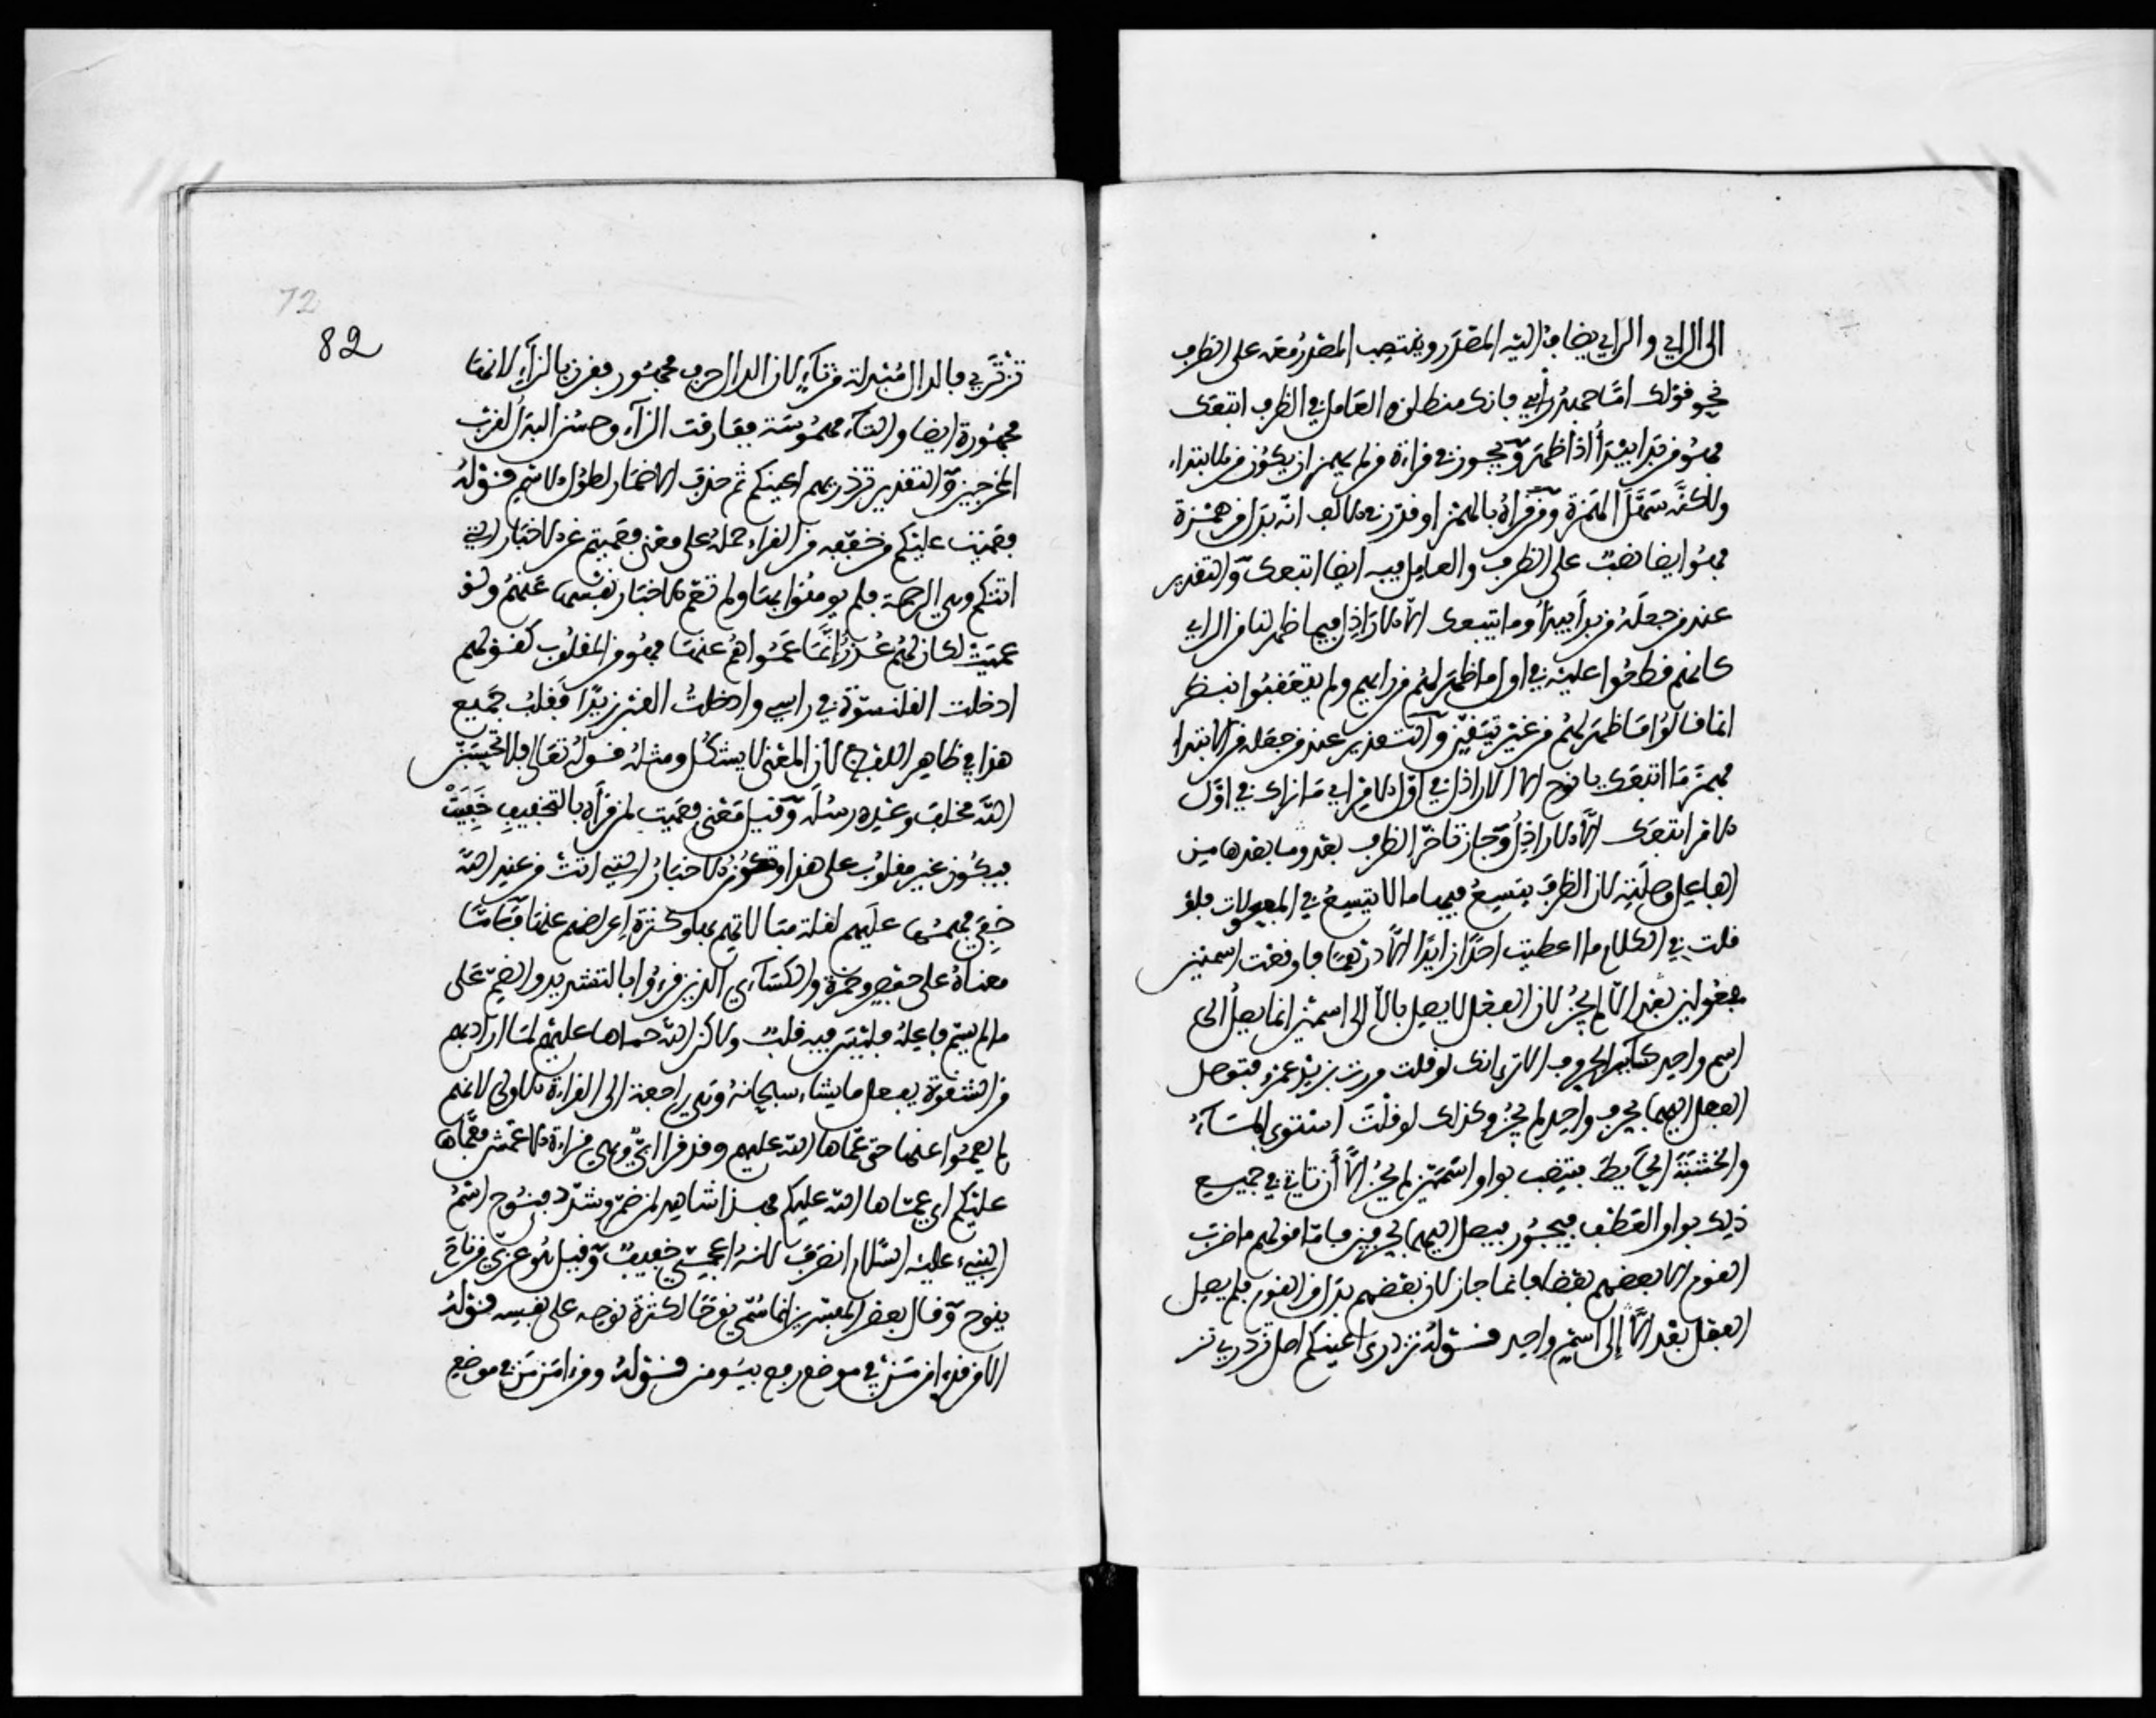 الى الراي والراي يضاف اليه المصدر وينتصب المصدر معه على الظرف
نحو قولك اما جهد رأيي فانك منطلق والعامل في الظرف اتبعك
فهو من بدا يبدأ اذا ظهر ويجوز في قراءة من لم يهمز ان يكون من الابتداء
ولكنه سهل الهمزة ومن قرأه بالهمز او قدر في الالف انه بدل من همزة
فهو ايضا نصب على الظرف والعامل فيه ايضا اتبعك والتقدير
عند من جعله من بدا يبدو وما اتبعك الا الاراذل فيما ظهر لنا من الراي
كانهم قطعوا عليه في اول ما ظهر لهم من رايهم ولم يتعقبوا بنظر
انما قالوا ما ظهر لهم من غير تيقن والتقدير عند من جعله من الابتداء
فهمز ما اتبعك يا نوح الا الاراذل في اول الامر اي ما نراك في اول
الامر اتبعك الا الاراذل وجاز تاخر الظرف بعد وما بعدها من
الفاعل وصلته لان الظرف يتسع فيها ما لا يتسع في المفعولات فلو
قلت في الكلام ما اعطيت احدا زايدا الا درهما فاوقعت اسمين
مفعولين بعد الا لم يجز لان الفعل لا يصل بالا الى اسمين انما يصل الى
اسم واحد كسائر الحروف الا ترى انك لو قلت مررت بزيد عمرو فتوصل
الفعل اليهما بحرف واحد لم يجز وكذلك لو قلت استوى الماء
والخشبة الحايط فتنصب بواو اسمين لم يجز الا ان تاتي في جميع
ذلك بواو العطف فيجوز فيصل اليهما بحرفين فاما قولهم ما ضرب
القوم الا بعضهم بعضا فانما جاز لان بعضهم بدل من القوم فلم يصل
الفعل بعد الا إلى اسم واحد قوله تزدرى اعينكم اصل تزدري تز
82
تزتري فالدال مبدلة من تاء لان الدال حرف مجهور فقرن بالزاي لانها
مجهورة ايضا والتاء مهموسة ففارقت الزاء وحسن البدل لقرب
المخرجين والتقدير تزدريهم اعينكم ثم حذف الاضمار لطول الاسم قوله
فعميت عليكم من خففه من القراء حمله على معنى فعميتم عن الاخبار التي
اتتكم وهي الرحمة فلم يومنوا بها ولم تعم الاخبار نفسها عنهم ولو
عميت لكان لهم عذر إنما عموا هم عنها فهو من المقلوب كقولهم
ادخلت القلنسوة في راسي وادخلت القبر زيدا فقلب جميع
هذا في ظاهر اللفظ لان المعنى لا يشكل ومثله قوله تعالى فلا تحسبن
الله مخلف وعده رسله وقيل معنى فعميت لمن قرأه بالتخفيف خفيت
فيكون غير مقلوب على هذا وتكون الاخبار التي اتت من عند الله
خفي فهمها عليهم لقلة مبالاتهم بها وكثرة إعراضهم عنها فاما
معناه على حفص وحمزة والكسائي الذين قرءوا بالتشديد والضم على
ما لم يسم فاعله فليس فيه قلب ولاكن الله عماها عليهم لما اراد بهم
من الشقوة يفعل ما يشاء سبحانه وهي راجعة الى القراءة الاولى لانهم
لم يعموا عنها حتى عماها الله عليهم وقد قرا ابي وهي قراءة الاعمش فعماها
عليكم اي عماها الله عليكم فهذا شاهد لمن ضم وشدد فنوح اسم
النبيء عليه السلام انصرف لانه اعجمي خفيف وقيل هو عربي من ناح
ينوح وقال بعض المفسرين انما سمي نوحا لكثرة نوحه على نفسه قوله
الا من قدء امن من في موضع رفع بيومن قوله ومن امن من في موضع